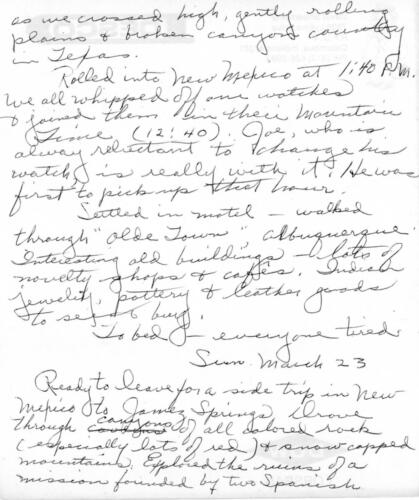 as we crossed high, gently rolling
plains & broken canyon country
in Texas.
Rolled into New Mexico at 1:40 P.M.
We all whipped off our watches
& joined them in their Mountain
Time (12:40). Joe, who is
always reluctant to change his
watch, is really with it! He was
first to pick up that hour.
Settled in motel - walked
through "Olde Town", Albuquerque.
Interesting old buildings - lots of
novelty shops & cafes. Indian
jewelry, pottery & leather goods
to see & buy.
To bed - everyone tired.
Sun. March 23
Ready to leave for a side trip in New
Mexico to Jamez Springs. Drove
through canyons of all colored rock
(especially lots of red) & snow capped
mountains. Explored the ruins of a
mission founded by two Spanish